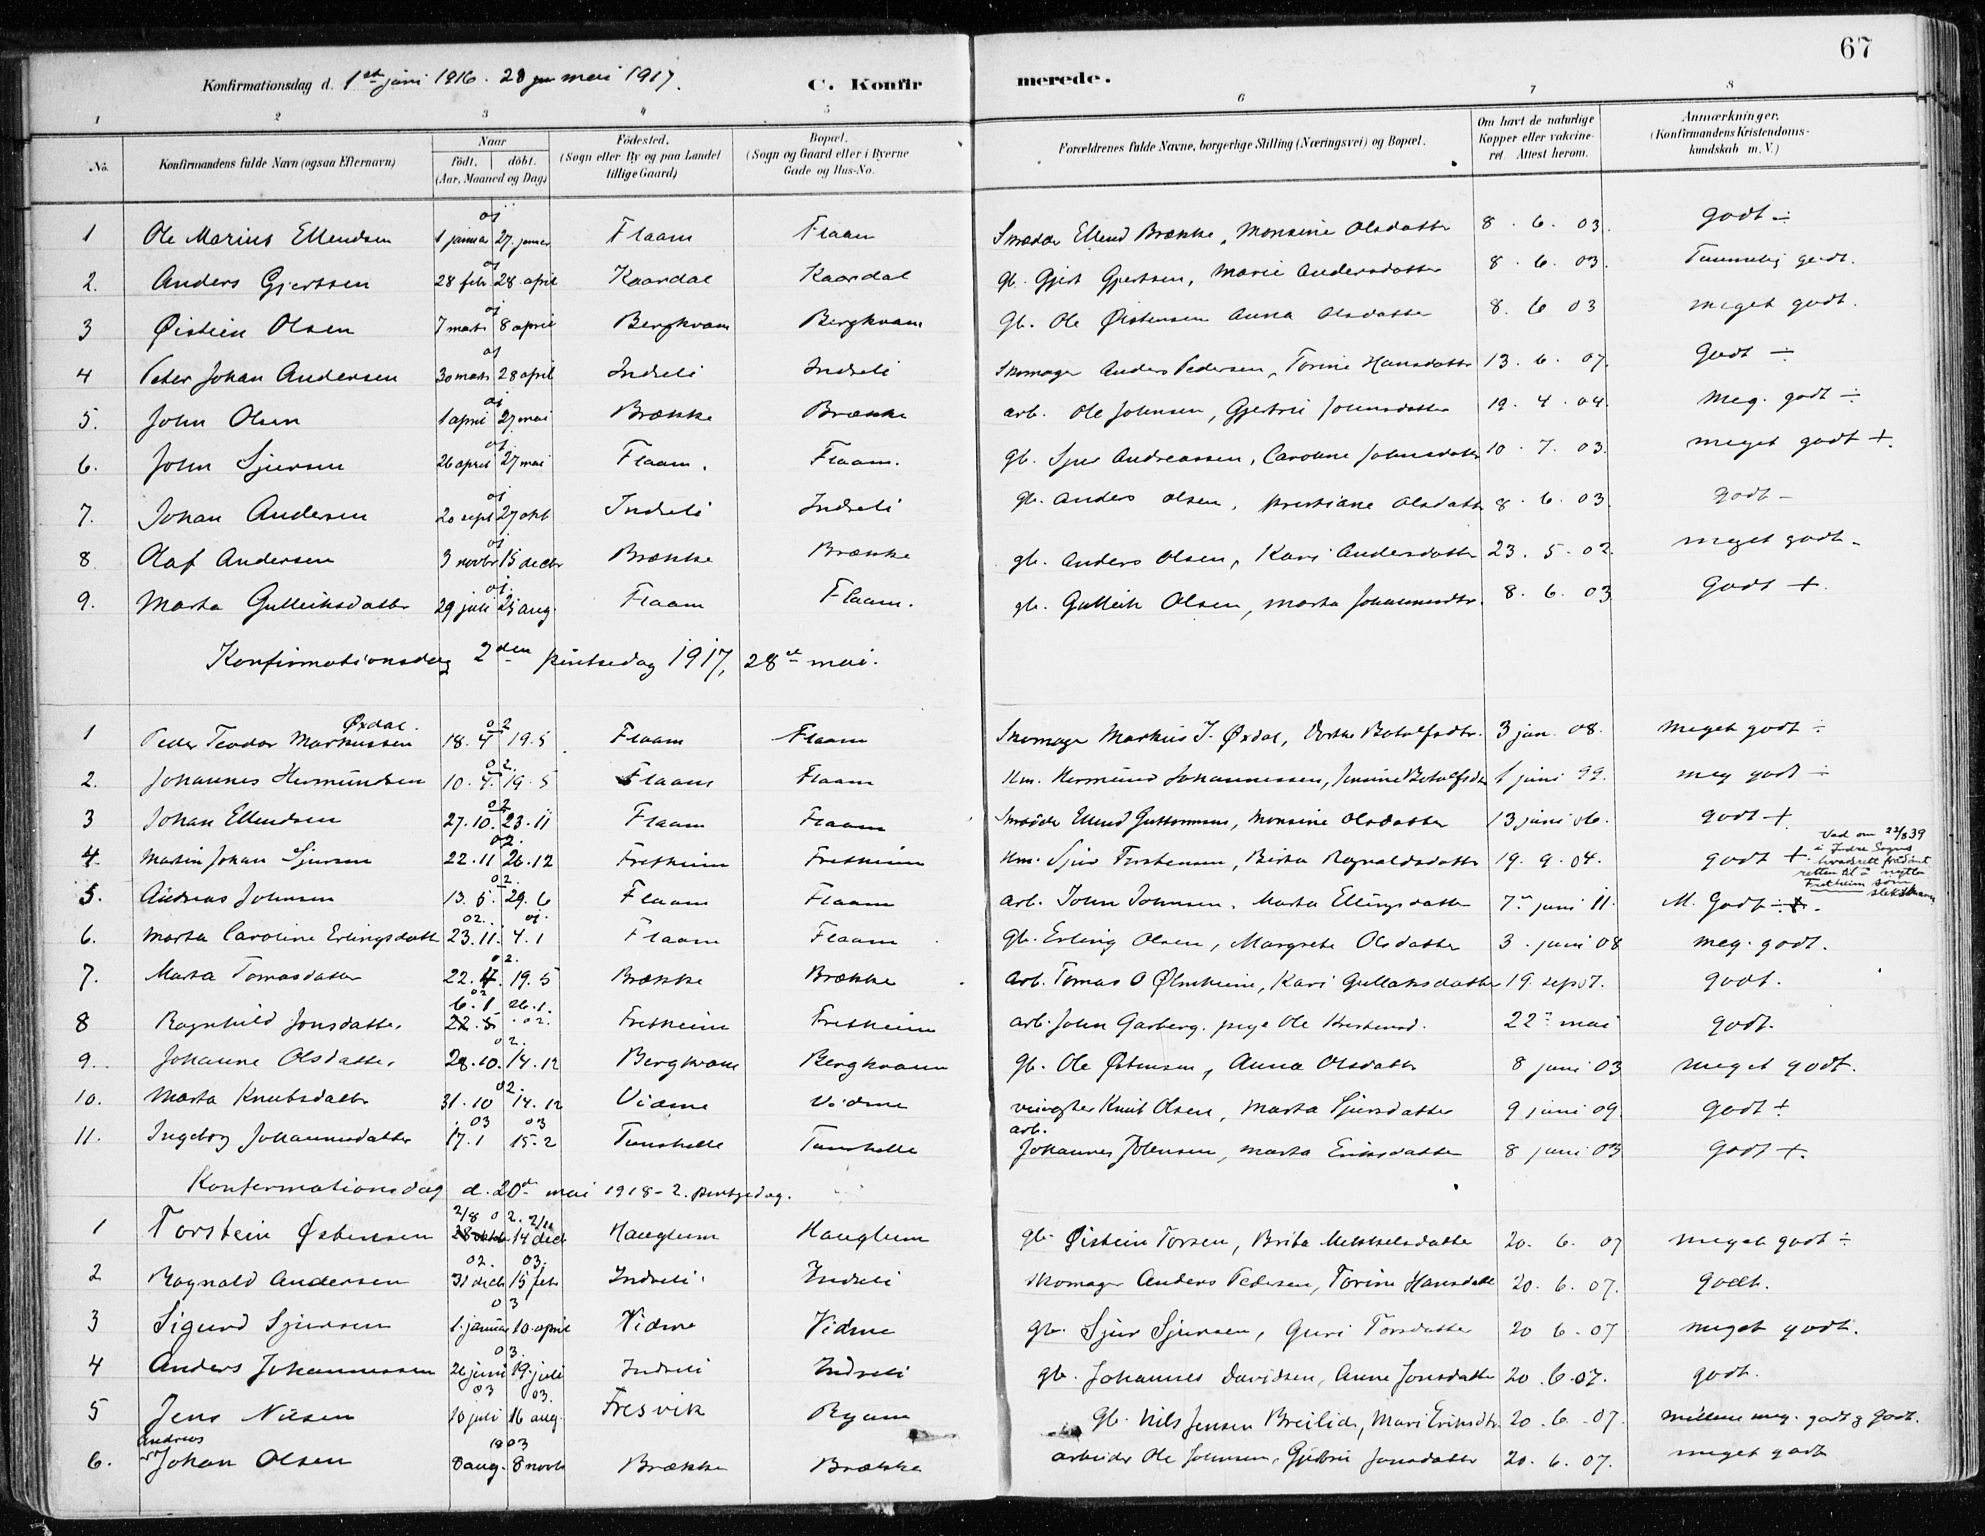 67
Konfirmationsdag d. 1ste juni 1916. 28 mai 1917. C. Konfirmerede.
1 2 3 4 5 6 7 8
No. Konfirmandens fulde Navn (ogsaa Efternavn) Naar födt. döbt. (Aar, Maaned og Dag) Födested. (Sogn eller By og paa Landet tillige Gaard) Bopæl. (Sogn og Gaard eller i Byerne Gade og Hus-No. Forældrenes fulde Navne, borgerlige Stilling (Næringsvei) og Bopæl. Om havt de naturlige Kopper eller vakcineret. Attest herom. Anmærkninger. (Konfirmandens Kristendomskundskab m. V.)
1 Ole Marius Ellendsen 1 januar 27. januar 01 Flaam Flaam Skrædder Ellend Brække, Monsine Olsdatter 8. 6. 03. godt ÷
2. Anders Gjertsen 28 febr 28. april 01 Kaardal Kaardal gb. Gjert Gjertsen, Marie Andersdatter 8. 6. 03. Temmelig godt.
3 Øistein Olsen 7 mars 8 april 01 Bergkvam Bergkvam gb. Ole Øistensen Anna Olsdatter 8. 6 03 meget godt.
4 Peter Johan Andersen 30 mars 28 april 01 Indreli Indreli Skomager Anders Pedersen, Torine Hansdatter 13. 6. 07. Godt ÷
5. John Olsen 1 april 27 mai 01 Brække Brække arb. Ole Johnsen, Gjertrii Johnsdatter 19. 4. 04. Meg. godt ÷
6. John Sjursen 26 april 27 mai 01. Flaam. Flaam. gb. Sjur Andreassen, Caroline Johnsdatter 10. 7. 03. meget godt +.
7. Johan Andersen 20 sept 27 okt 01 Indreli Indreli gb. Anders Olsen, Kristiane Olsdatter 8. 6. 03. godt –
8 Olaf Andersen 3 novbr 15 decbr 01 Brække Brække gb. Anders Olsen, Kari Andersdatter 23. 5. 02. meget godt –
9. Marta Gulleiksdatter 29 juli 25 aug. 01. Flaam Flaam. gb. Gulleik Olsen, Marta Johannesdtr. 8. 6. 03 godt +.
Konfirmationsdag 2den pintsedag 1917, 28de mai.
1 Peder Teodor Markussen Øxdal. 18. 4 19. 5 02 Flaam Flaam Skomager Markus J. Øxdal, Dorthe Botolfsdtr. 3 jan. 08. meget godt ÷
2. Johannes Hermundsen 10. 4. 19. 5 02. Flaam Flaam Hm. Hermund Johannessen, Jensine Botolfsdtr 1 juni 99. meg godt ÷
3 Johan Ellendsen 27. 10. 23. 11 02 Flaam Flaam Skrædder Ellend Guttormsen, Monsine Olsdatter 13 juni 06. godt +.
4. Martin Johan Sjursen 22. 11 26. 12 02. Fretheim Fretheim Hm. Sjur Torstensen, Birta Ragnaldsdatter 19. 9. 04. godt + Ved om 22/8 39 i Indre Sogns herredsrett frådømt retten til å nytte Fretheim som slektsnavn
5. Andreas Johnsen 13. 5. 29. 6 02. Flaam Flaam arb. John Johnsen, Marta Ellingsdatter 7de juni 11. M. Godt ÷
6. Marta Caroline Erlingsdatt 23. 11. 4. 1 02. 03. Flaam Flaam gb. Erling Olsen, Margrete Olsdatter 3. juni 08 meg. godt.
7. Marta Tomasdatter 22. 4. 19. 5 02. Brække Brække arb. Tomas O Ølnheim, Kari Gullaksdatter 19. sep 07. godt.
8 Ragnhild Jonsdatter. 6. 1 26. 1. 02. Fretheim Fretheim arb. John Garberg, 22de mai godt.
9. Johanne Olsdatter. 28. 10. 14. 12 02. Bergkvam Bergkvam gb. Ole Østensen, Anna Olsdatter 8 juni 03 meget godt.
10. Marta Knutsdatter 31. 10 14. 12 02. Vidme Vidme Knut Olsen, Marta Sjursdatter 9 juni 09. godt ÷
11. Ingeborg Johannesdatter 17. 1 15. 2 03 03 Tunshelle Tunshelle arb. Johannes Johnsen, Marta Eriksdatter 8 juni 03 godt +.
Konfirmationsdag d. 20de mai 1918 – 2. pintsedag.
1 Torstein Østensen 2/8 02. 2/11 28 oktbr 14 decb Haugleim Haugleim gb. Øistein Torsen, Brita Mikkelsdatter 20. 6. 07 meget godt ÷
2 Ragnald Andersen 31 decb 15 febr 02. 03. Indreli Indreli Skomager Anders Pedersen, Torine Hansdatt 20. 6. 07. godt.
3 Sigurd Sjursen 1. januar 10. april 03 Vidme Vidme gb. Sjur Sjursen, Guri Torsdatter 20 6. 07 meget godt.
4 Anders Johannessen 26 juni 19. juli 03. Indreli Indreli gb. Johannes Davidsen, Anne Jonsdatter 20. 6. 07. godt.
5 Jens Nilsen 10 juli 16 aug. 03 03. Fresvik Ryum gb. Nils Jensen Breilid, Mari Eriksdtr 20. 6. 07. mellem meg. godt og godt.
6. Andreas Johan Olsen 8 aug. 8 novbr 1903 Brække Brække arbeider Ole Johnsen, Gjertrii Jonsdatter 20. 6. 07. meget godt